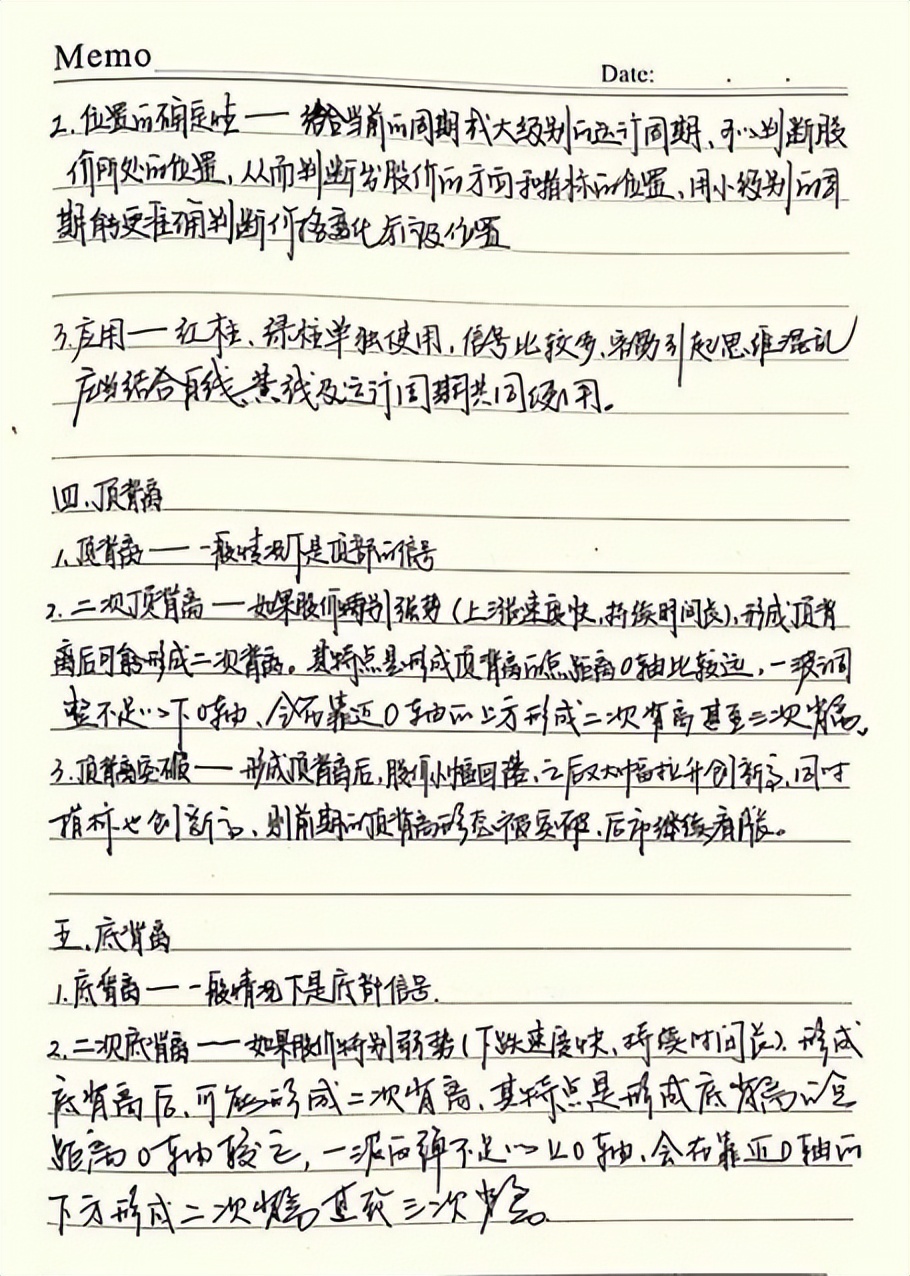 Memo
Date: . .
2.位置的确定性——结合当前的周期或大级别的运行周期、可以判断股
价所处的位置,从而判断出股价的方向和指标的位置、用小级别的周
期能更准确判断价格变化后的及位置
3.应用——红柱、绿柱单独使用,信号比较多、容易引起思维混乱
应当结合白线、黄线及运行周期共同使用。
四、顶背离
1.顶背离——一般情况下是顶部的信号
2.二次顶背离——如果股价特别强势(上涨速度快,持续时间长),形成顶背
离后可能形成二次背离。其特点是形成顶背离的点距离0轴比较远,一波调
整不足以下0轴、会在靠近0轴的上方形成二次背离甚至三次背离。
3.顶背离突破——形成顶背离后,股价小幅回落,之后又大幅拉升创新高,同时
指标也创新高、则前期的顶背离形态被突破、后市继续看涨。
五、底背离
1.底背离——一般情况下是底部信号.
2.二次底背离——如果股价特别弱势(下跌速度快、持续时间长).形成
底背离后、可能形成二次背离、其特点是形成底背离的点
距离0轴较远,一波反弹不足以上0轴、会在靠近0轴的
下方形成二次背离甚至三次背离.